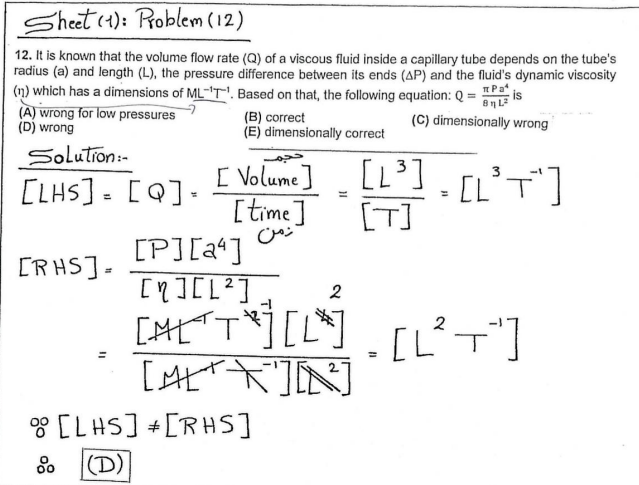 Sheet (1): Problem (12)
12. It is known that the volume flow rate (Q) of a viscous fluid inside a capillary tube depends on the tube's
radius (a) and length (L), the pressure difference between its ends (ΔP) and the fluid's dynamic viscosity
(η) which has a dimensions of ML⁻¹T⁻¹. Based on that, the following equation: Q = π P a⁴ / 8 η L² is
(A) wrong for low pressures (B) correct (C) dimensionally wrong
(D) wrong (E) dimensionally correct
Solution:-
[LHS] = [Q] = [Volume] حجم / [time] زمن = [L³] / [T] = [L³ T⁻¹]
[RHS] = [P][a⁴] / [η][L²]
= [ML⁻¹ T⁻²]⁻¹ [L⁴]² / [ML⁻¹ T⁻¹][L²] = [L² T⁻¹]
∴ [LHS] ≠ [RHS]
∴ (D)